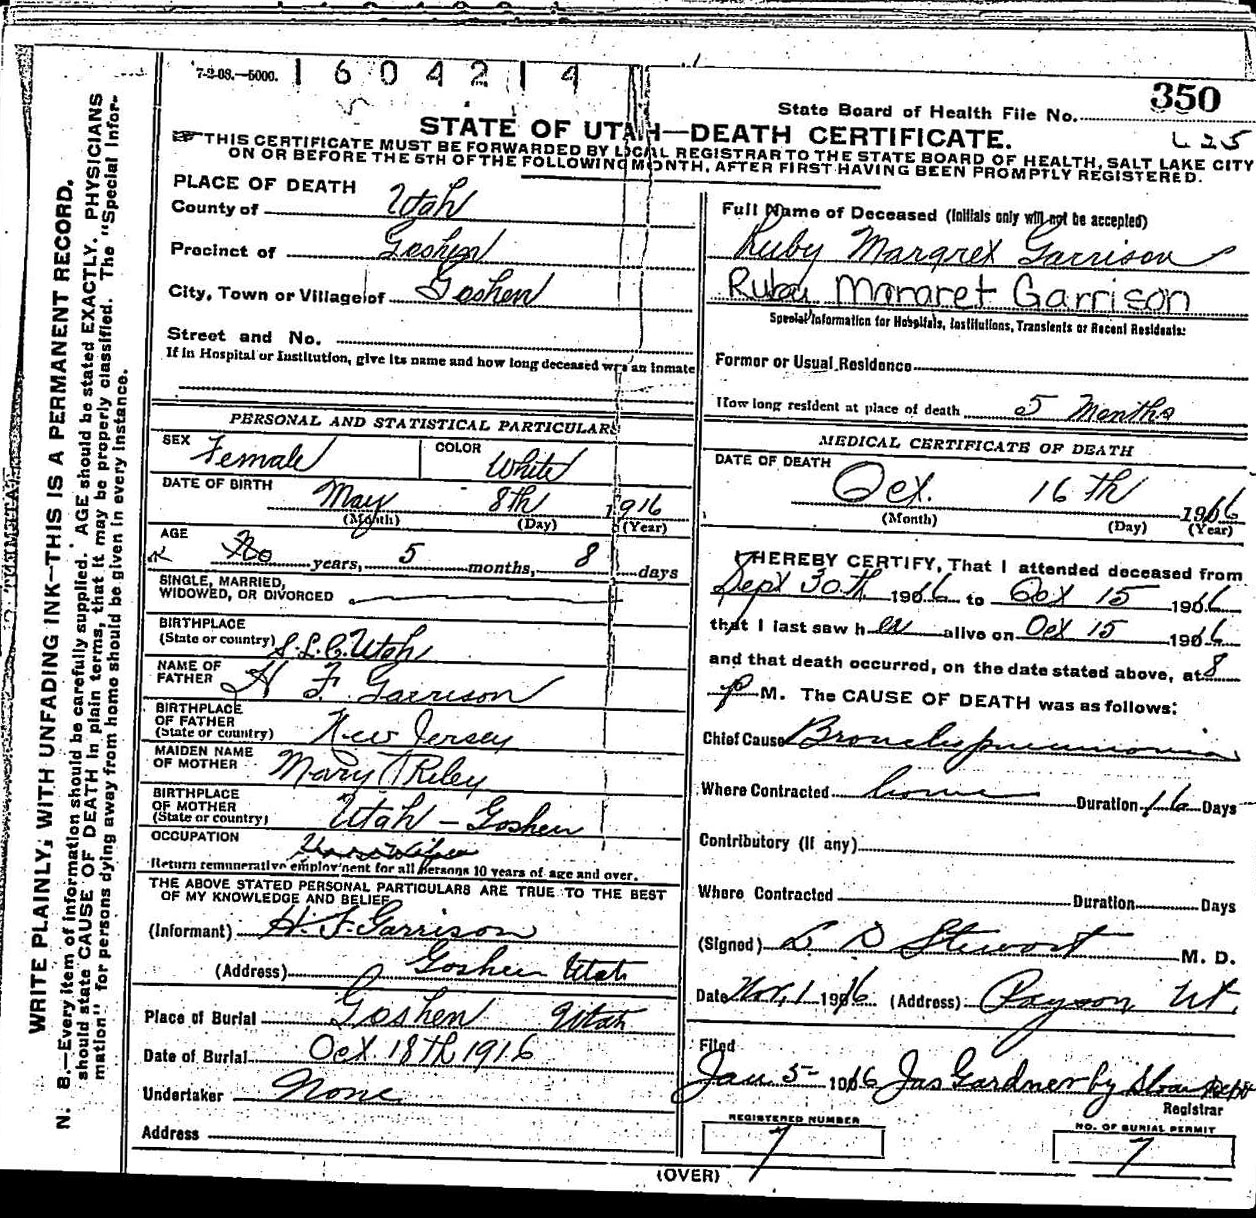 7-2-08.—5000.
1604214
State Board of Health File No. 350
STATE OF UTAH—DEATH CERTIFICATE.
L 25
THIS CERTIFICATE MUST BE FORWARDED BY LOCAL REGISTRAR TO THE STATE BOARD OF HEALTH, SALT LAKE CITY
ON OR BEFORE THE 5TH OF THE FOLLOWING MONTH, AFTER FIRST HAVING BEEN PROMPTLY REGISTERED.
WRITE PLAINLY, WITH UNFADING INK—THIS IS A PERMANENT RECORD.
N. B.—Every item of information should be carefully supplied. AGE should be stated EXACTLY. PHYSICIANS
should state CAUSE OF DEATH in plain terms, that it may be properly classified. The "Special Infor-
mation" for persons dying away from home should be given in every instance.
PLACE OF DEATH
County of Utah
Precinct of Goshen
City, Town or Village of Goshen
Street and No.
If in Hospital or Institution, give its name and how long deceased was an inmate
PERSONAL AND STATISTICAL PARTICULARS
SEX Female
COLOR White
DATE OF BIRTH May 8th 1916
(Month) (Day) (Year)
AGE
No years, 5 months, 8 days
SINGLE, MARRIED,
WIDOWED, OR DIVORCED
BIRTHPLACE
(State or country) S.L.C. Utah
NAME OF
FATHER H F Garrison
BIRTHPLACE
OF FATHER
(State or country) New Jersey
MAIDEN NAME
OF MOTHER Mary Riley
BIRTHPLACE
OF MOTHER
(State or country) Utah - Goshen
OCCUPATION
Return remunerative employment for all persons 10 years of age and over.
THE ABOVE STATED PERSONAL PARTICULARS ARE TRUE TO THE BEST
OF MY KNOWLEDGE AND BELIEF
(Informant) H. F. Garrison
(Address) Goshen Utah
Place of Burial Goshen Utah
Date of Burial Oct 18th 1916
Undertaker None
Address
Full Name of Deceased (Initials only will not be accepted)
Ruby Margret Garrison
Ruby Margaret Garrison
Special Information for Hospitals, Institutions, Transients or Recent Residents:
Former or Usual Residence
How long resident at place of death 5 Months
MEDICAL CERTIFICATE OF DEATH
DATE OF DEATH
Oct. 16th 1916
(Month) (Day) (Year)
I HEREBY CERTIFY, That I attended deceased from
Sept 30th 1916 to Oct 15 1916
that I last saw her alive on Oct 15 1916
and that death occurred, on the date stated above, at 8
p M. The CAUSE OF DEATH was as follows:
Chief Cause Bronchopneumonia
Where Contracted home Duration 16 Days
Contributory (if any)
Where Contracted Duration Days
(Signed) L D Stewart M. D.
Date Nov. 1 1916 (Address) Payson Ut.
Filed
Jan 5 - 1916 Jas Gardner by
Registrar
REGISTERED NUMBER
7
NO. OF BURIAL PERMIT
7
(OVER)